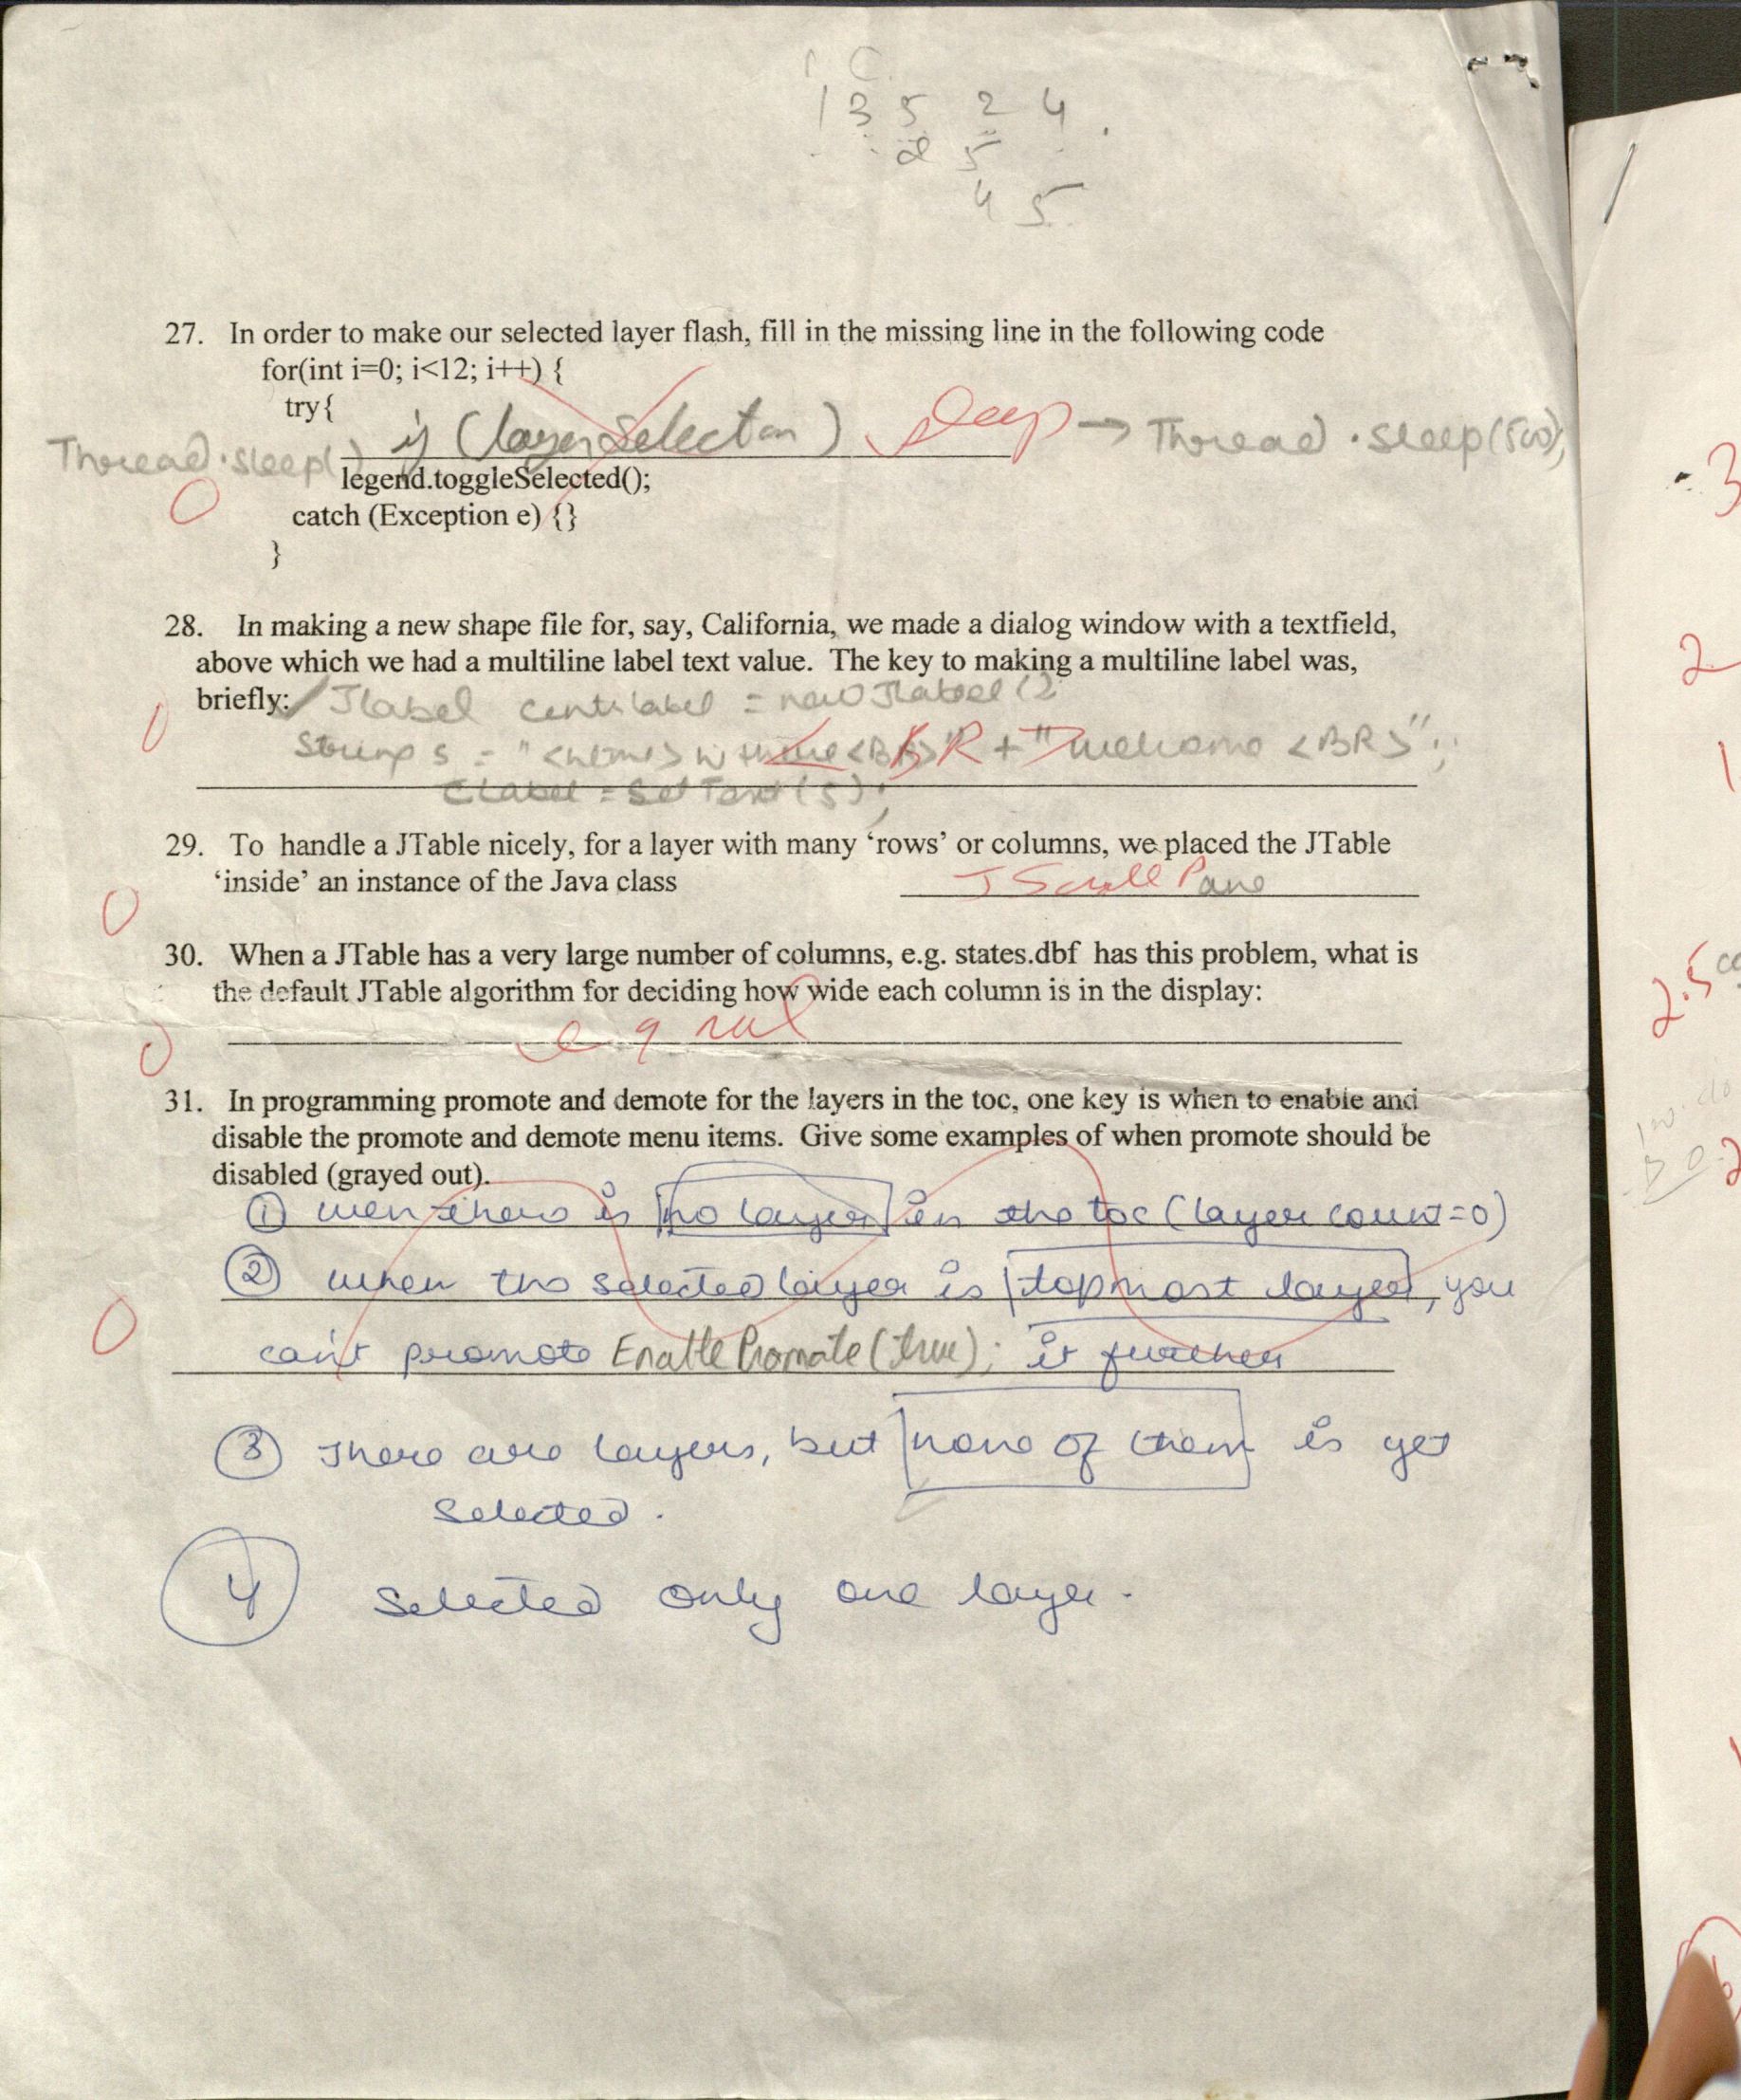 1 C.
1 3 5 2 4
2 5
4 5
27. In order to make our selected layer flash, fill in the missing line in the following code
for(int i=0; i<12; i++) {
try{
Thread.sleep() if (layer Selection) sleep → Thread.sleep(500);
0 legend.toggleSelected();
catch (Exception e) {}
}
28. In making a new shape file for, say, California, we made a dialog window with a textfield,
above which we had a multiline label text value. The key to making a multiline label was,
briefly: Jlabel centlabel = new Jlabel ()
0 String s = "<html> <BR>" + "welcome <BR>";
<BR>
Clabel = SetText(s);
29. To handle a JTable nicely, for a layer with many ‘rows’ or columns, we placed the JTable
‘inside’ an instance of the Java class JScrollPane
0
30. When a JTable has a very large number of columns, e.g. states.dbf has this problem, what is
the default JTable algorithm for deciding how wide each column is in the display:
0 equal
31. In programming promote and demote for the layers in the toc, one key is when to enable and
disable the promote and demote menu items. Give some examples of when promote should be
disabled (grayed out).
① when there is no layer in the toc (layer count=0)
② when the selected layer is topmost layer, you
0 can't promote EnablePromote(true); it further
③ There are layers, but none of them is yet
selected.
4 Selected only one layer.
-3
2
1
2.5
2